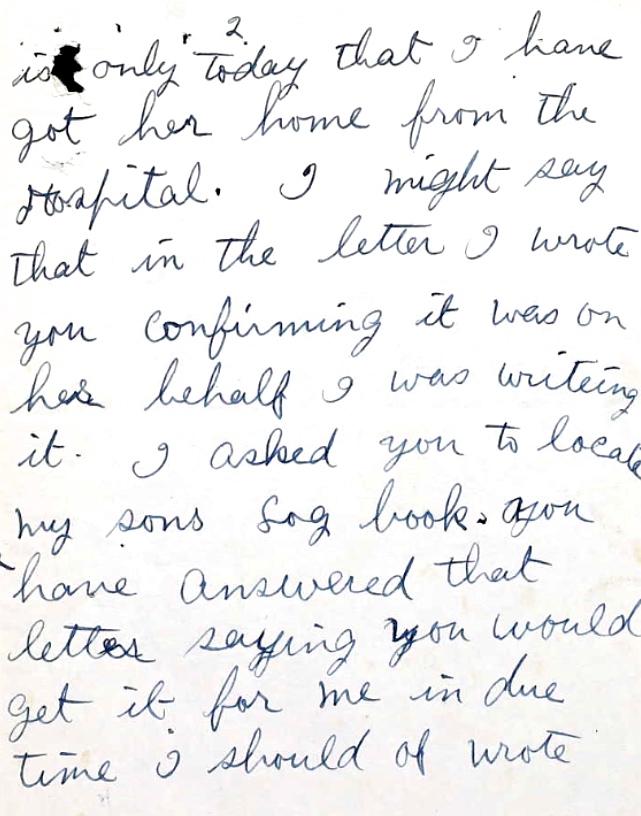 2
is only today that I have
got her home from the
Hospital. I might say
that in the letter I wrote
you confirming it was on
her behalf I was writeing
it. I asked you to locate
my sons Log book. you
have answered that
letter saying you would
get it for me in due
time I should of wrote